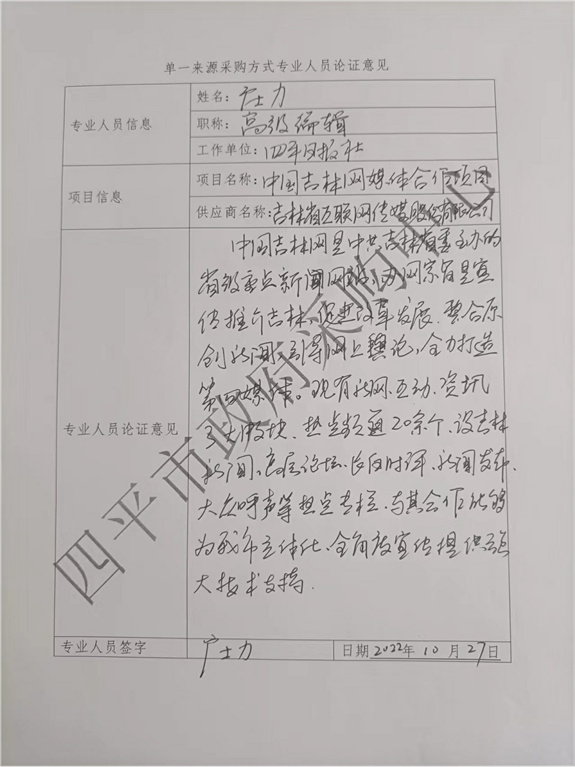 单一来源采购方式专业人员论证意见
专业人员信息
姓名：
职称：高级编辑
工作单位：四平日报社
项目信息
项目名称：中国吉林网媒体合作项目
供应商名称：吉林省互联网传媒股份有限公司
专业人员论证意见
中国吉林网是中共吉林省委主办的
省级重点新闻网站，办网宗旨是宣
传推介吉林、促进改革发展、整合原
创新闻、引导网上舆论，全力打造
第四媒体。现有新闻、互动、资讯
三大版块，热点频道20余个，设吉林
新闻、高层论坛、长白时评、新闻发布、
大众呼声等热点专栏，与其合作能够
为我市立体化、全角度宣传提供强
大技术支持.
专业人员签字
日期2022年10月27日
四平市政府采购中心